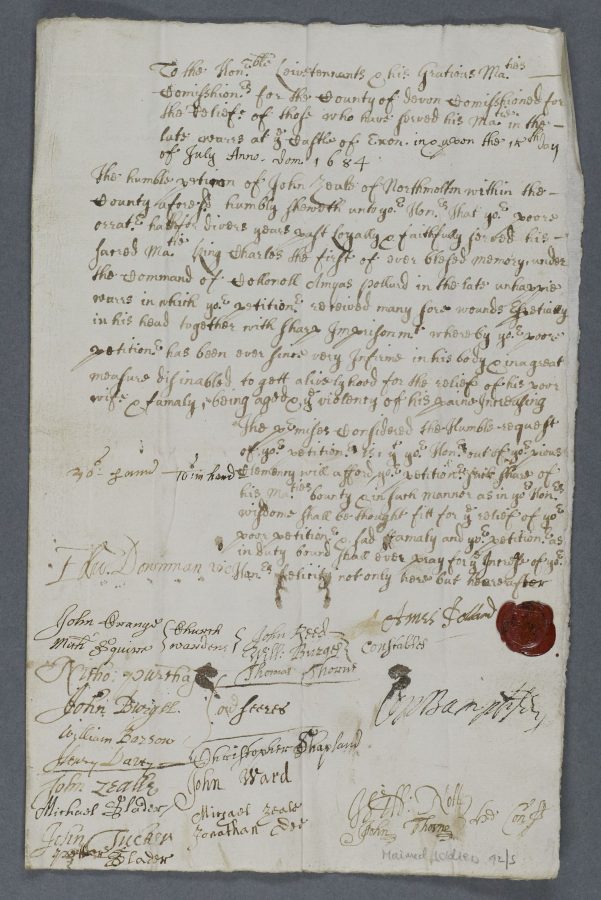 To the Hon:ble Leivetennants & his Gratious Ma:ties
Comisshion:rs for the County of devon Comissioned for
the Reliefe of those who have served his Ma:tie in the
late warrs at ye Castle of Exon. in & upon the day
of July Anno. Dom: 1684
The humble petition of John Zeale of Northmolton within the
County aforesd humbly sheweth unto yor Honrs That yor poore
orratr hath for divers years past Loyally & faithfully served his
sacred Ma:tie King Charles the first of ever blesed memory, under
the Command of Collonoll Amyas Pollard in the late
warrs in which yor petitionr received many sore wounds Espetially
in his head together with sharp Imprisonmt whereby yor poore
petitionr has been ever since very Infirme in his body & in a great
measure disinabled to gett a livelyhood for the relief of his poor
wife & famaly, being aged & ye violenty of his paine Increasing
The pmises Considered the Humble request
of yor petitionr is yt yor Honrs out of yor pious
Clemency will afford yor petitionr such share of
30s p ann 10s in hand
his Ma:ties bounty & in such manner as in yor Honrs
wisdome shall be thought fitt for ye relief of yor
poor petitionr & sad famaly and yor petitionr as
in duty bound shall ever pray for ye Increse of yor
Honrs felicity not only here but heereafter
Edw: Downman vic
Ames Pollard
John Orange Church John Reed
Math Squire wardens Will: Burges Constables
Richo: Thomas Thorne
John overseers
William Barrow
Henry Christopher Shapland
John Zealle John Ward
Michael Slader Michael Zeale
Jonathan
John Thorne
John Tucker
Slader
Maimed Soldiers 92/5